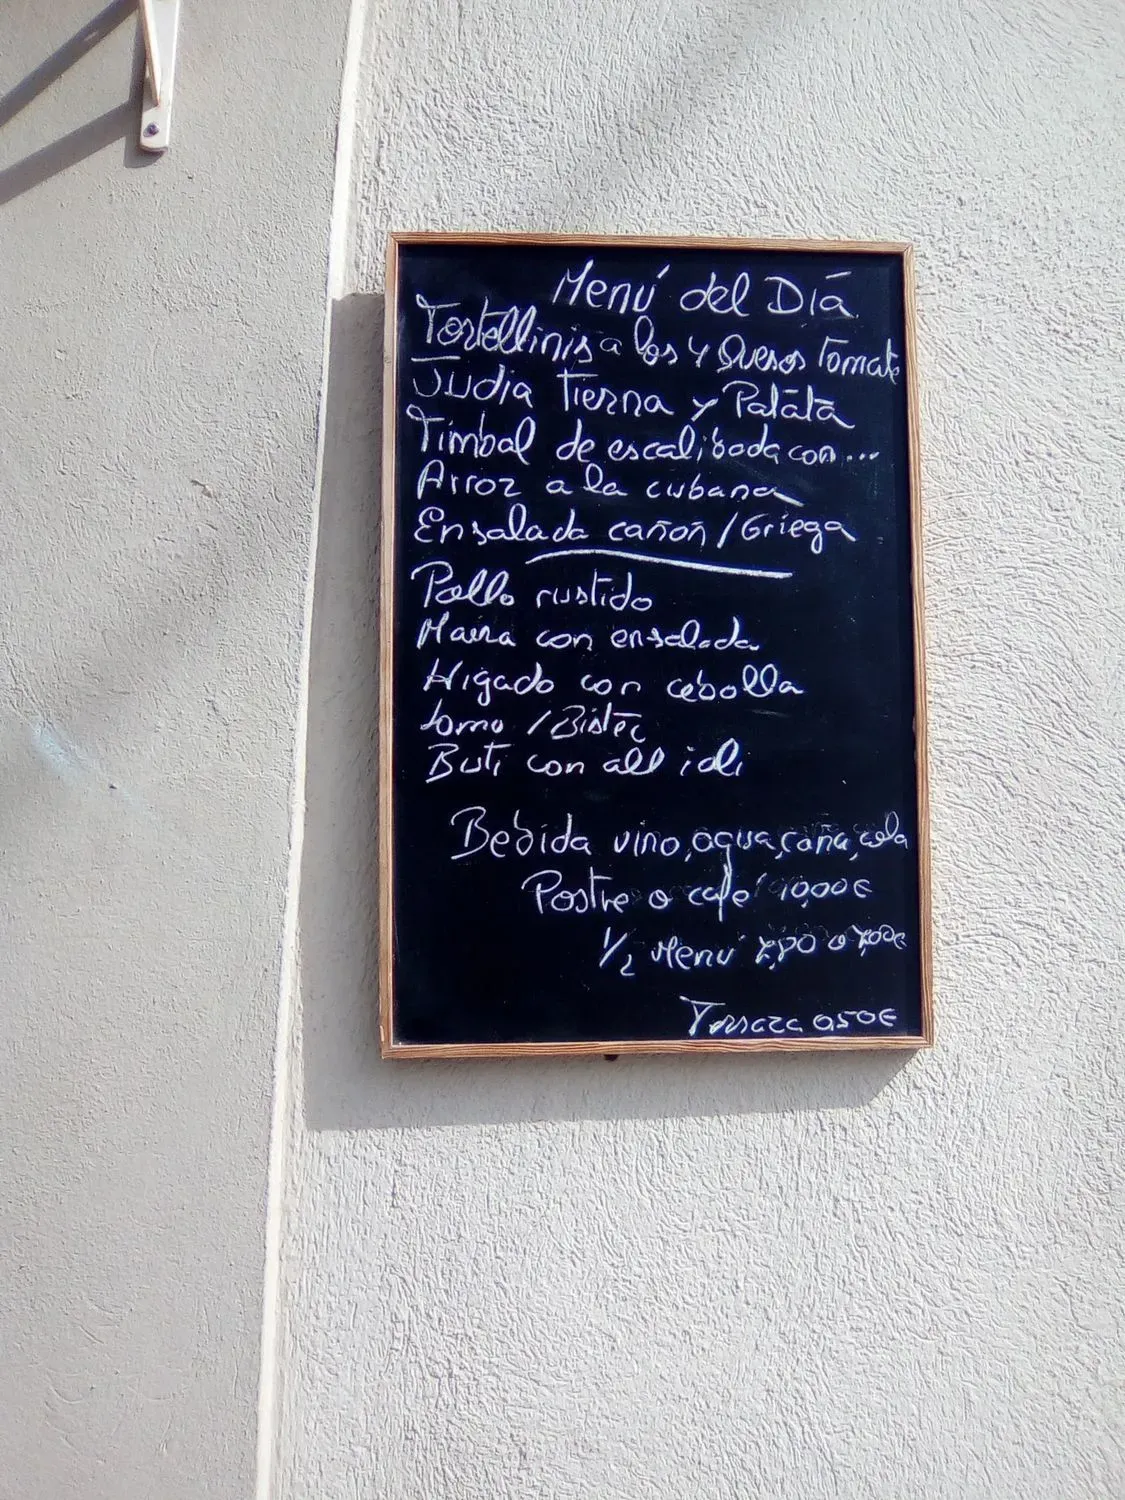 Menú del Día
Tortellinis a los 4 Quesos Tomate
Judia Tierna y Patata
Timbal de escalibada con...
Arroz a la cubana
Ensalada cañón / Griega
Pollo rustido
Maira con ensalada
Higado con cebolla
Lomo / Bistec
Buti con all ioli
Bebida vino, agua, caña, cola
Postre o café 10,00€
1/2 Menú 7,80 o 7,00€
Terraza 0,50€